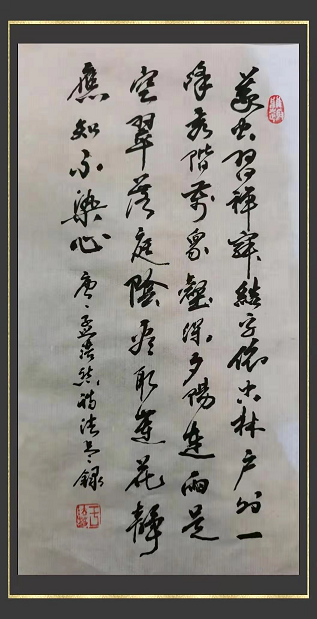 義公習禪寂結宇依空林戶外一
峰秀階前眾壑深夕陽連雨足
空翠落庭陰看取蓮花靜
應知不染心 唐孟浩然詩 錄